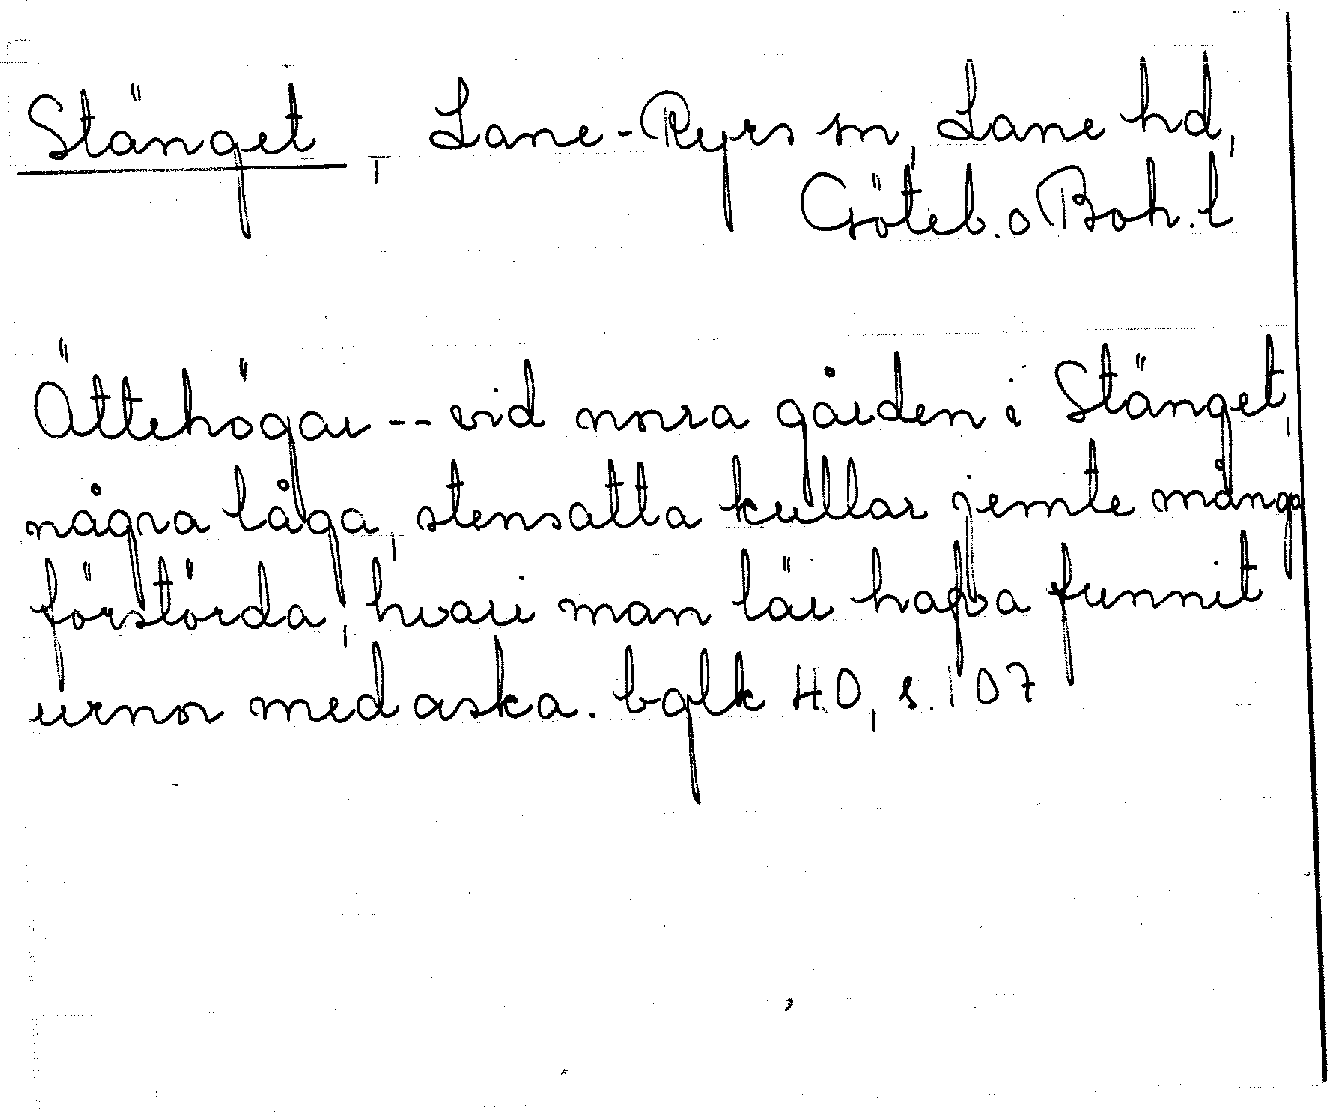 Stänget, Lane-Ryrs sn, Lane hd,
Göteb. o Boh. l
Ättehögar -- vid norra gården i Stänget,
några låga, stensatta kullar jemte många
förstörda, hvari man lär hafva funnit
urnor med aska. bglk 40, s. 107